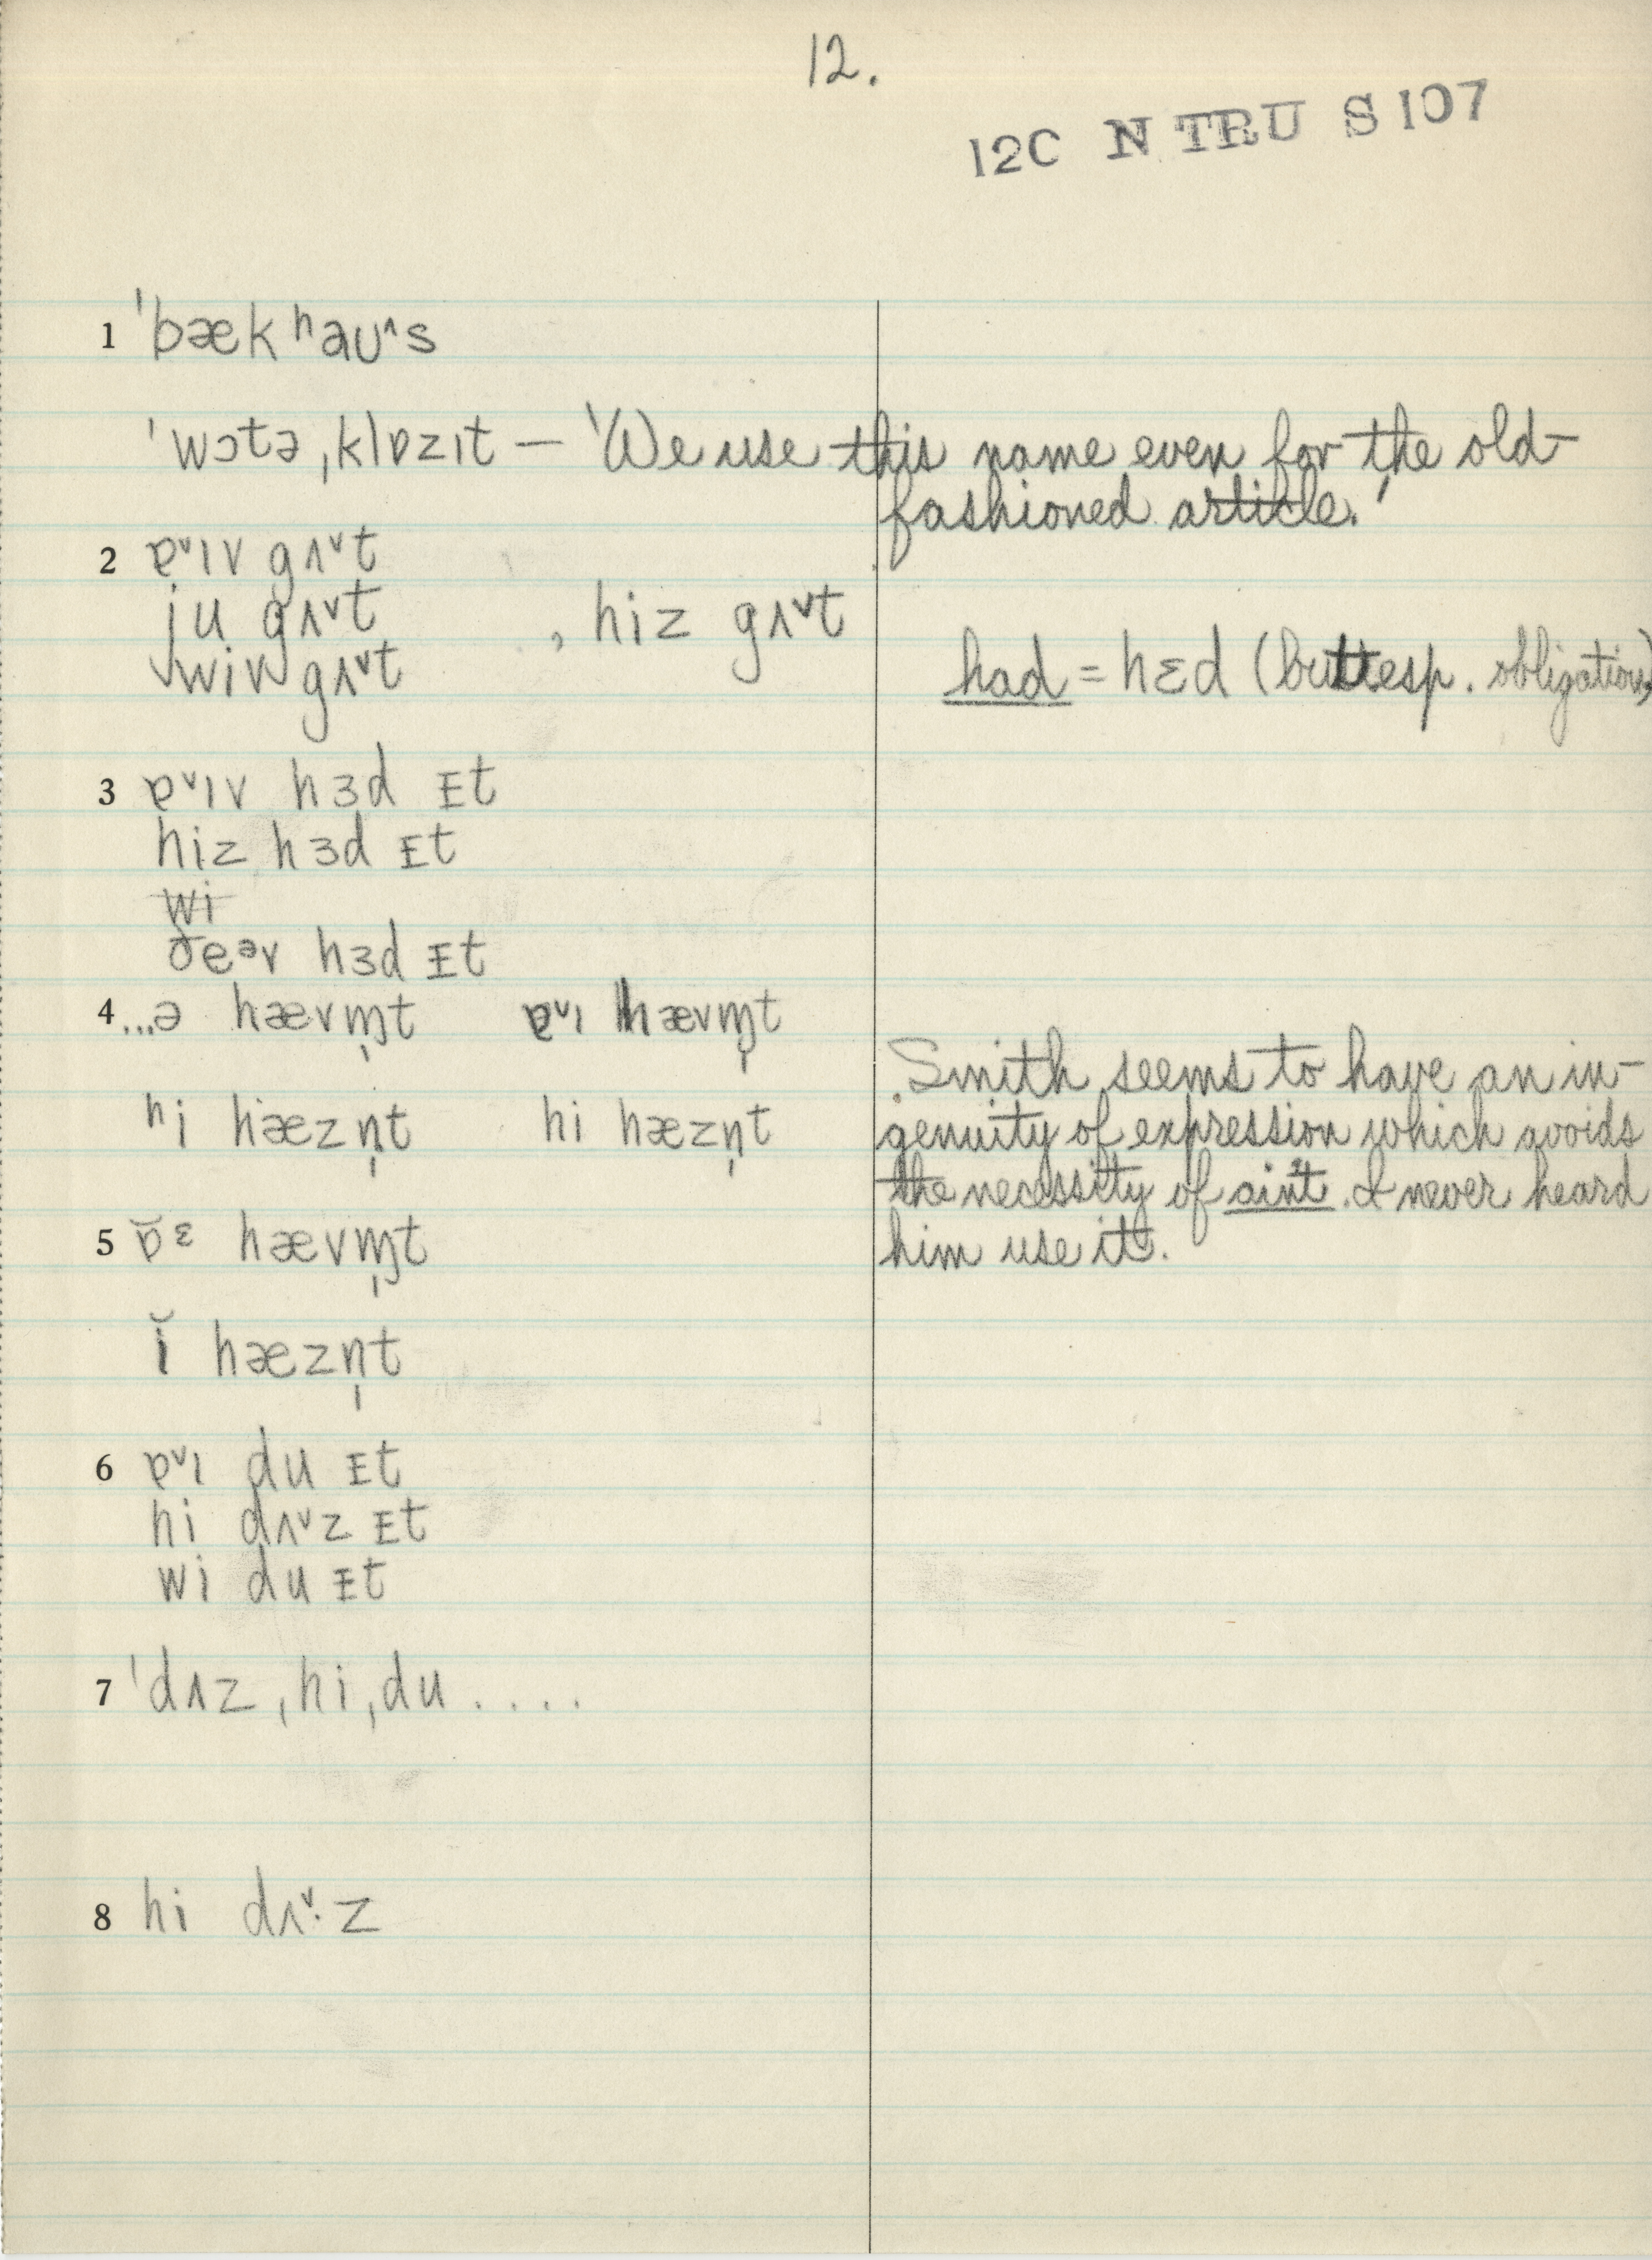 12.
12C N TRU S 107
1 ˈbækʰaʊ^s
ˈwɔtə ˌklɒzɪt — 'We use this name even for the old-
fashioned article.'
2 ɐᵛɪv gʌᵛt
ju gʌᵛt , hiz gʌᵛt
wiv gʌᵛt
had = hɛd (but esp. obligation)
3 ɐᵛɪv hɜd ᴇt
hiz hɜd ᴇt
wi
ðeᵊv hɜd ᴇt
4 ...ə hævɱ̩t ɐᵛɪ hævɱ̩t
ʰi hæzn̩t hi hæzn̩t
Smith seems to have an in-
genuity of expression which avoids
the necessity of ain't. I never heard
him use it.
5 ɒ̆ᵋ hævɱ̩t
ĭ hæzn̩t
6 ɐᵛɪ du ᴇt
hi dʌᵛz ᴇt
wi du ᴇt
7 ˈdʌz ˌhi ˌdu ....
8 hi dʌᵛ·z